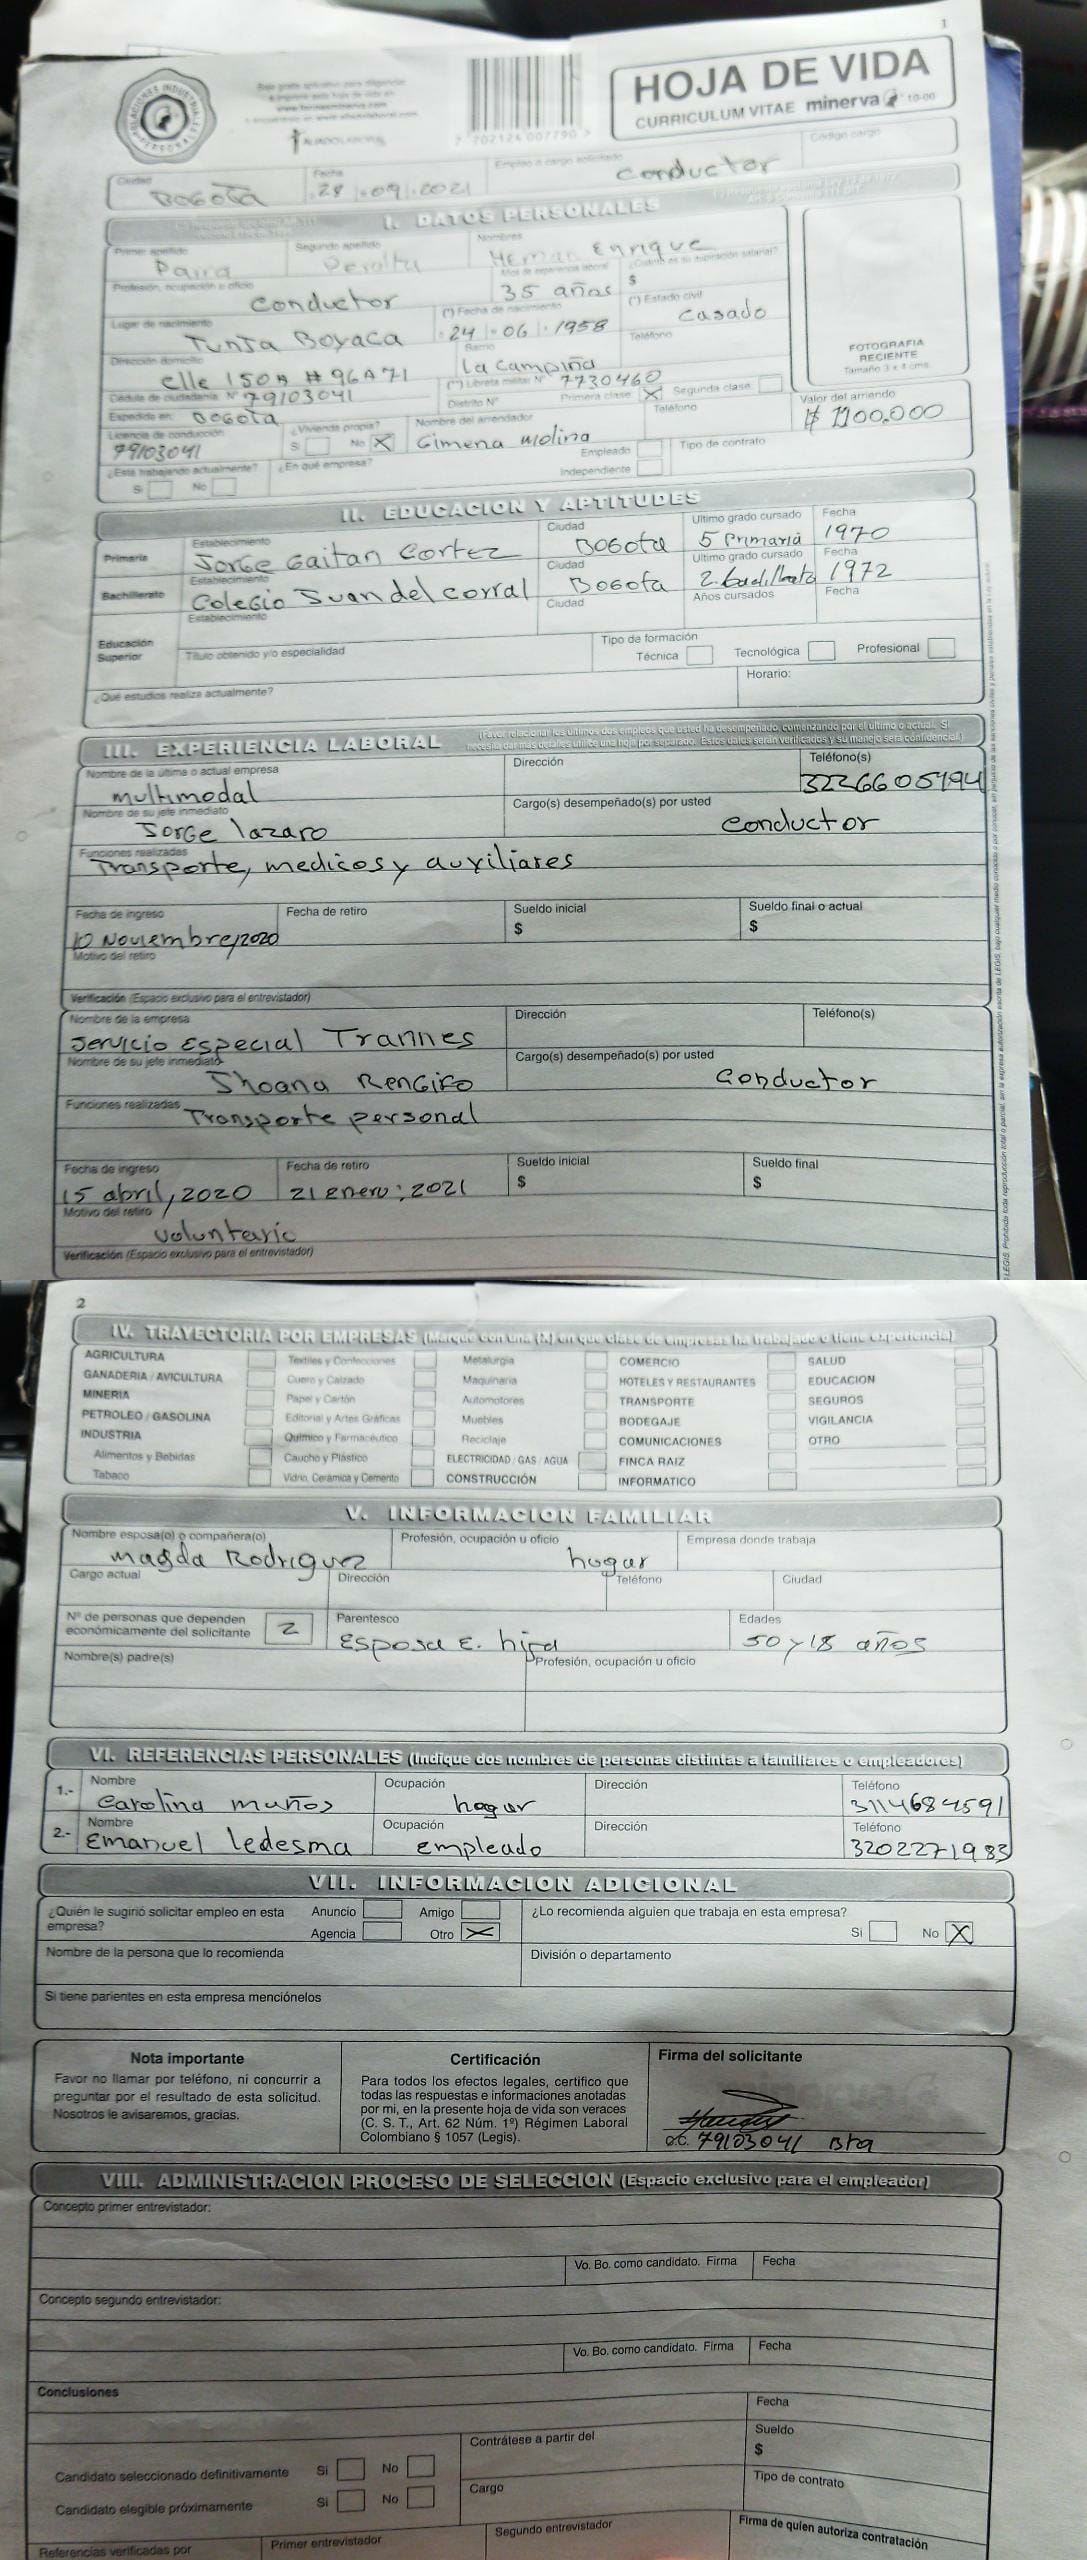 1
HOJA DE VIDA
CURRICULUM VITAE minerva 10-00
7 702124 007790 >
Ciudad Fecha Empleo o cargo solicitado Código cargo
BOGOTA 28 09 2021 Conductor
I. DATOS PERSONALES
Primer apellido Segundo apellido Nombres
Parra Peralta Hernan Enrique
Profesión, ocupación u oficio Años de experiencia laboral ¿Cuánto es su aspiración salarial?
Conductor 35 años $
Lugar de nacimiento (*) Fecha de nacimiento (*) Estado civil
Tunja Boyaca 24 06 1958 Casado
Dirección domicilio Barrio Teléfono
Clle 150A # 96A71 La Campiña
FOTOGRAFIA
RECIENTE
Tamaño 3 x 4 cms.
Cédula de ciudadanía Nº 79103041 (**) Libreta militar Nº 7730460
Expedida en: Bogota Distrito Nº Primera clase X Segunda clase
Licencia de conducción ¿Vivienda propia? Nombre del arrendador Teléfono Valor del arriendo
79103041 Si No X Gimena Molina $ 1100.000
¿Está trabajando actualmente? ¿En qué empresa? Empleado Tipo de contrato
Si No Independiente
II. EDUCACION Y APTITUDES
Primaria Establecimiento Ciudad Ultimo grado cursado Fecha
Jorge Gaitan Cortez Bogota 5 Primaria 1970
Bachillerato Establecimiento Ciudad Ultimo grado cursado Fecha
Colegio Juan del corral Bogota 2 1972
Educación Superior Establecimiento Ciudad Años cursados Fecha
Título obtenido y/o especialidad Tipo de formación Técnica Tecnológica Profesional
¿Qué estudios realiza actualmente? Horario:
III. EXPERIENCIA LABORAL (Favor relacionar los últimos dos empleos que usted ha desempeñado, comenzando por el último o actual. Si
necesita dar más detalles utilice una hoja por separado. Estos datos serán verificados y su manejo será confidencial.)
Nombre de la última o actual empresa Dirección Teléfono(s)
multimodal 3226605194
Nombre de su jefe inmediato Cargo(s) desempeñado(s) por usted
Jorge lazaro conductor
Funciones realizadas
Transporte, medicos y auxiliares
Fecha de ingreso Fecha de retiro Sueldo inicial Sueldo final o actual
10 Noviembre,2020 $ $
Motivo del retiro
Verificación (Espacio exclusivo para el entrevistador)
Nombre de la empresa Dirección Teléfono(s)
Servicio Especial Trannes
Nombre de su jefe inmediato Cargo(s) desempeñado(s) por usted
Jhoana Rengifo conductor
Funciones realizadas
Transporte personal
Fecha de ingreso Fecha de retiro Sueldo inicial Sueldo final
15 abril, 2020 21 enero, 2021 $ $
Motivo del retiro
voluntario
Verificación (Espacio exclusivo para el entrevistador)
2
IV. TRAYECTORIA POR EMPRESAS (Marque con una (X) en que clase de empresas ha trabajado o tiene experiencia)
AGRICULTURA Textiles y Confecciones Metalurgia COMERCIO SALUD
GANADERIA / AVICULTURA Cuero y Calzado Maquinaria HOTELES Y RESTAURANTES EDUCACION
MINERIA Papel y Cartón Automotores TRANSPORTE SEGUROS
PETROLEO / GASOLINA Editorial y Artes Gráficas Muebles BODEGAJE VIGILANCIA
INDUSTRIA Químico y Farmacéutico Reciclaje COMUNICACIONES OTRO
Alimentos y Bebidas Caucho y Plástico ELECTRICIDAD / GAS / AGUA FINCA RAIZ
Tabaco Vidrio, Cerámica y Cemento CONSTRUCCIÓN INFORMATICO
V. INFORMACION FAMILIAR
Nombre esposa(o) o compañera(o) Profesión, ocupación u oficio Empresa donde trabaja
Magda Rodriguez hogar
Cargo actual Dirección Teléfono Ciudad
Nº de personas que dependen Parentesco Edades
económicamente del solicitante 2 Esposa E. hija 50 y 18 años
Nombre(s) padre(s) Profesión, ocupación u oficio
VI. REFERENCIAS PERSONALES (Indique dos nombres de personas distintas a familiares o empleadores)
1.- Nombre Ocupación Dirección Teléfono
Carolina muños hogar 3114684591
2.- Nombre Ocupación Dirección Teléfono
Emanuel ledesma empleado 3202271983
VII. INFORMACION ADICIONAL
¿Quién le sugirió solicitar empleo en esta Anuncio Amigo ¿Lo recomienda alguien que trabaja en esta empresa?
empresa? Agencia Otro X Si No X
Nombre de la persona que lo recomienda División o departamento
Si tiene parientes en esta empresa menciónelos
Nota importante
Favor no llamar por teléfono, ni concurrir a
preguntar por el resultado de esta solicitud.
Nosotros le avisaremos, gracias.
Certificación
Para todos los efectos legales, certifico que
todas las respuestas e informaciones anotadas
por mi, en la presente hoja de vida son veraces
(C. S. T., Art. 62 Núm. 1º) Régimen Laboral
Colombiano § 1057 (Legis).
Firma del solicitante
C.C. 79103041 Bta
VIII. ADMINISTRACION PROCESO DE SELECCION (Espacio exclusivo para el empleador)
Concepto primer entrevistador:
Vo. Bo. como candidato. Firma Fecha
Concepto segundo entrevistador:
Vo. Bo. como candidato. Firma Fecha
Conclusiones
Fecha
Candidato seleccionado definitivamente Si No Contrátese a partir del Sueldo
$
Candidato elegible próximamente Si No Cargo Tipo de contrato
Referencias verificadas por Primer entrevistador Segundo entrevistador Firma de quien autoriza contratación